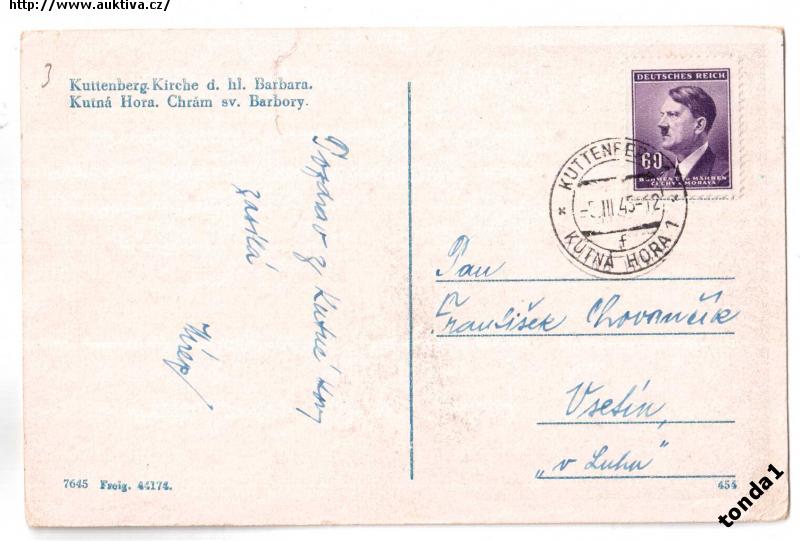 http://www.auktiva.cz/
3
Kuttenberg. Kirche d. hl. Barbara.
Kutná Hora. Chrám sv. Barbory.
Pozdrav z Kutné Hory
zasílá
DEUTSCHES REICH
60
BÖHMEN U. MÄHREN
ČECHY A MORAVA
KUTTENBERG
-5.III.45-12
f
KUTNÁ HORA 1
Pan
František Chovančík
Vsetín,
„v Luhu"
7645 Freig. 44174.
454
tonda1